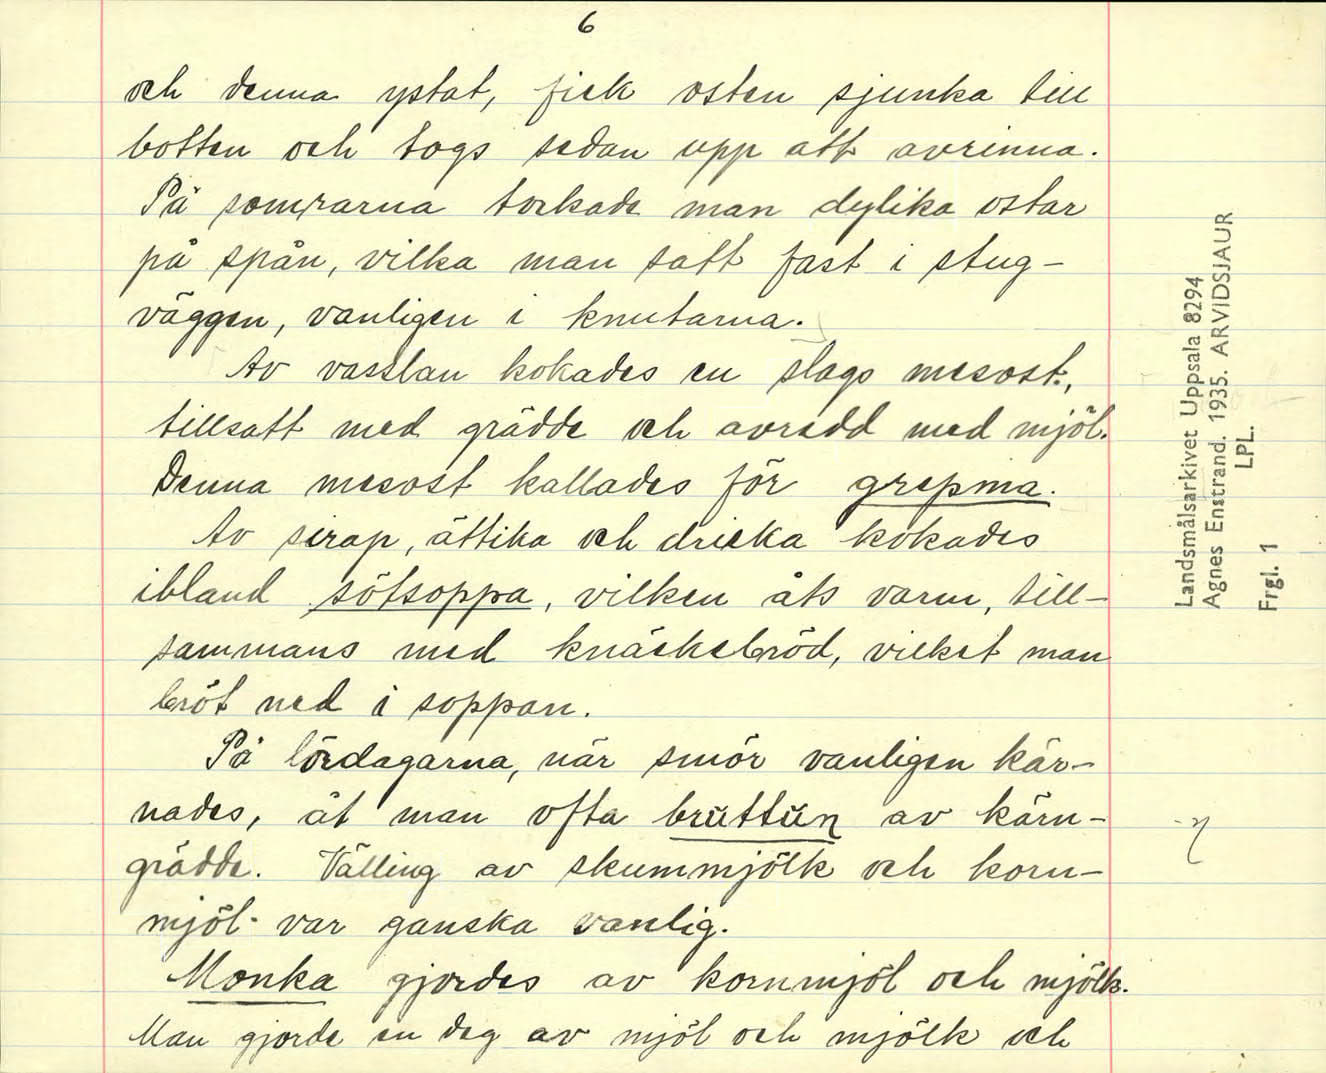 6
och denna ystat, fick osten sjunka till
botten och togs sedan upp att avrinna.
På somrarna torkade man dylika ostar
på spån, vilka man satt fast i stug-
väggen, vanligen i knutarna.
Av vasslan kokades en slags mesost,
tillsatt med grädde och avredd med mjöl.
Denna mesost kallades för grepma.
Av sirap, ättika och dricka kokades
ibland sötsoppa, vilken åts varm, till-
sammans med knäckebröd, vilket man
bröt ned i soppan.
På lördagarna, när smör vanligen kär-
nades, åt man ofta bruttun av kärn-
grädde. Välling av skummjölk och korn-
mjöl var ganska vanlig.
Monka gjordes av kornmjöl och mjölk.
Man gjorde en deg av mjöl och mjölk och
Landsmålsarkivet Uppsala 8294
Agnes Enstrand. 1935. ARVIDSJAUR
LPL.
Frgl. 1